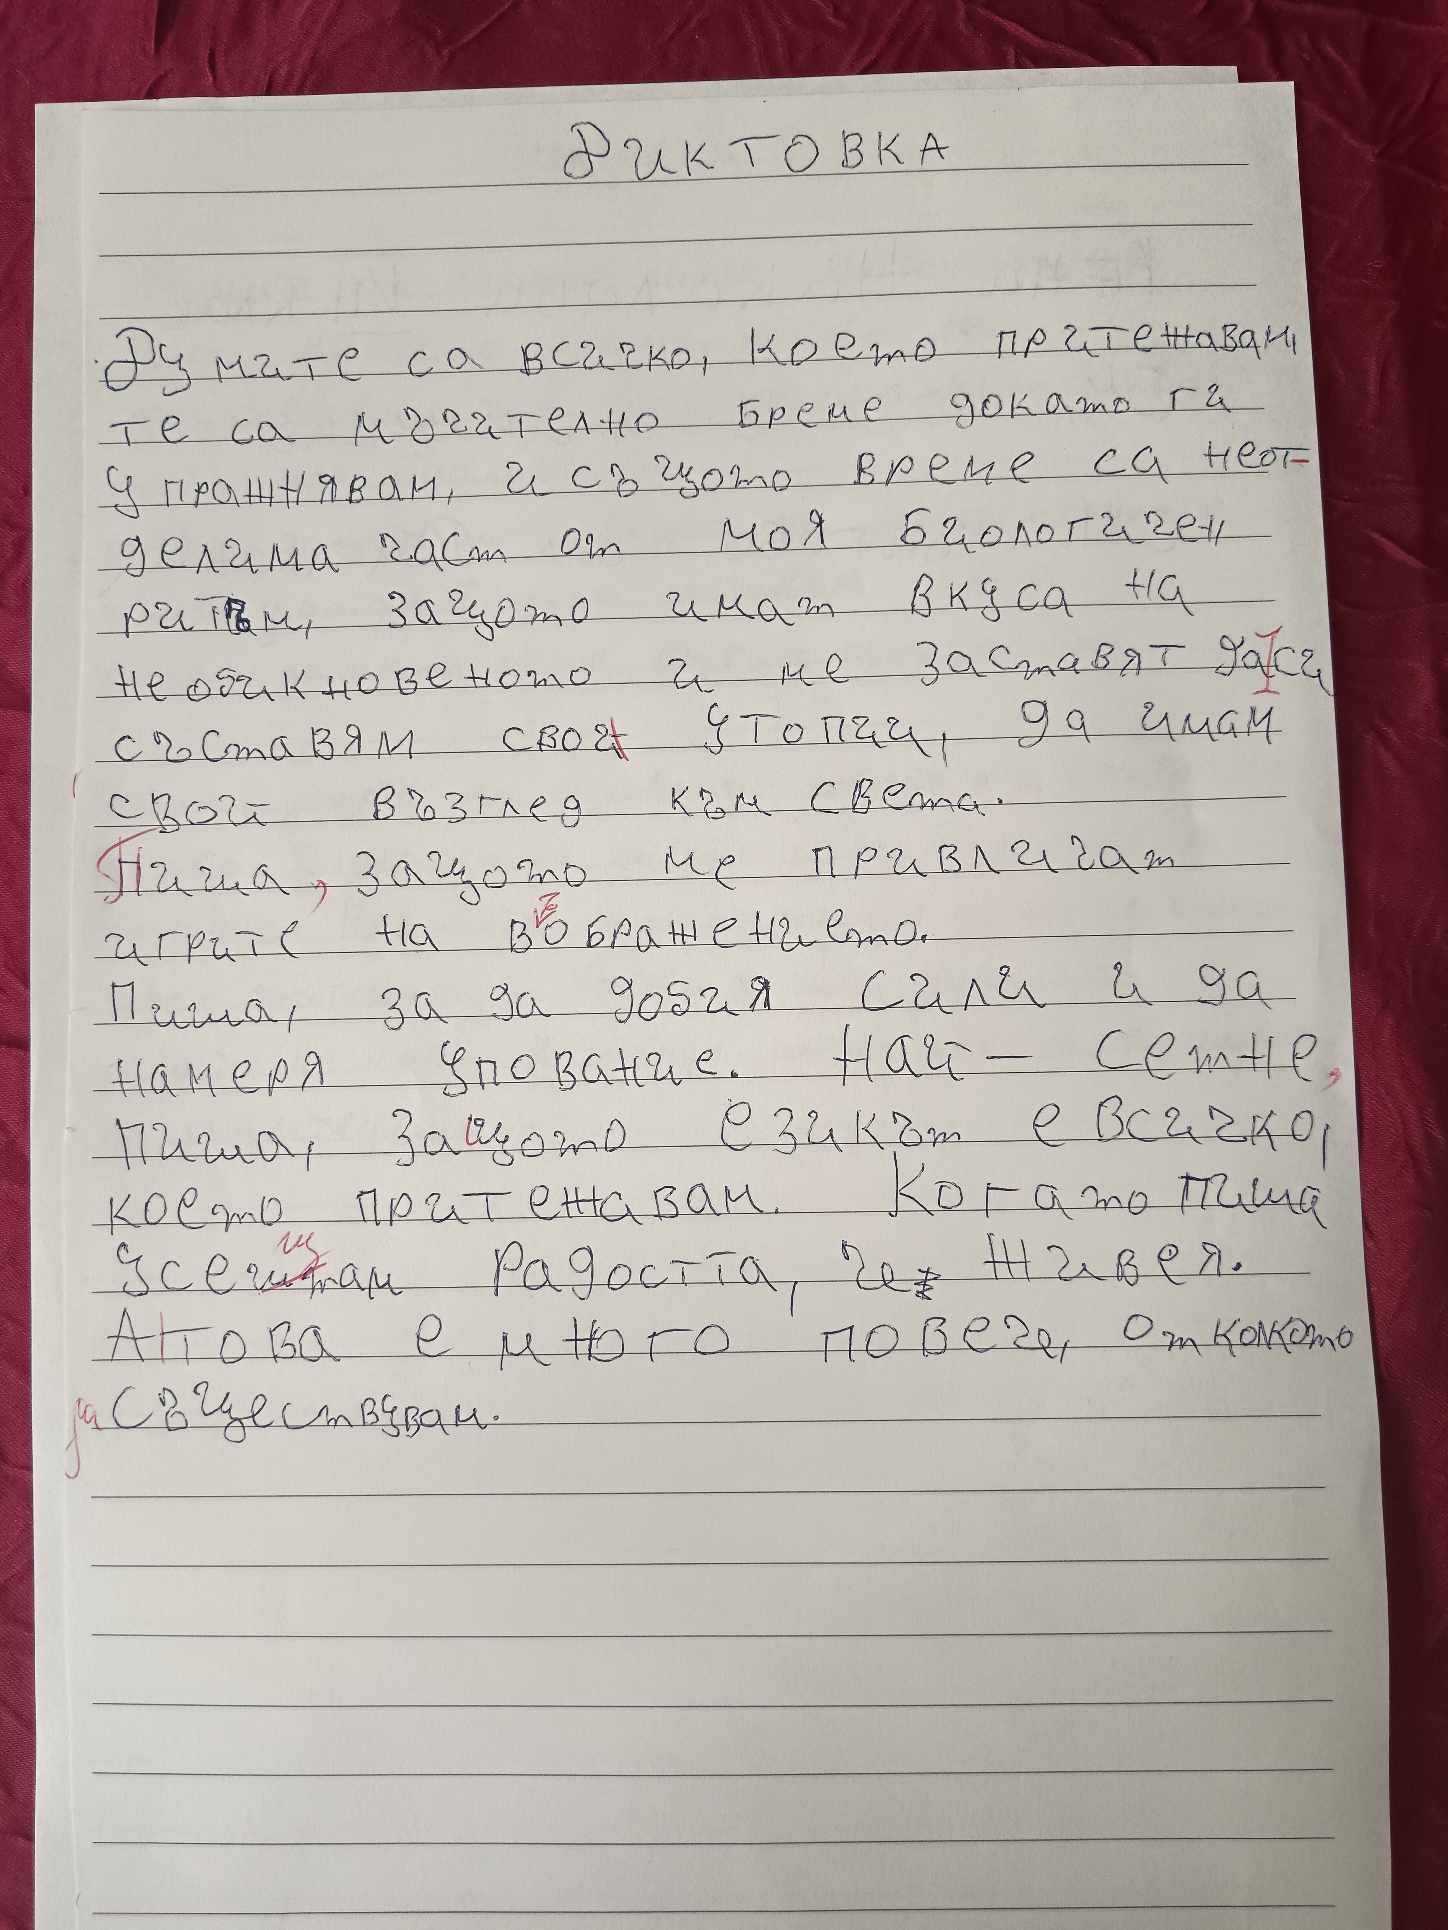 Диктовка
Думите са всичко, което притежавам,
те са мъчително бреме докато ги
упражнявам, и също време са неот-
делима част от моя биологичен
ритъм, защото имат вкуса на
необикновеното и ме заставят да си
съставям свои утопии, да имам
свой възглед към света.
Пиша, защото ме привличат
игрите на вображението.
Пиша, за да добия сили и да
намеря упование. Най - сетне,
пиша, защото езикът е всичко,
което притежавам. Когато пиша
усещам радостта, че живея.
А това е много повече, отколкото
да съществувам.